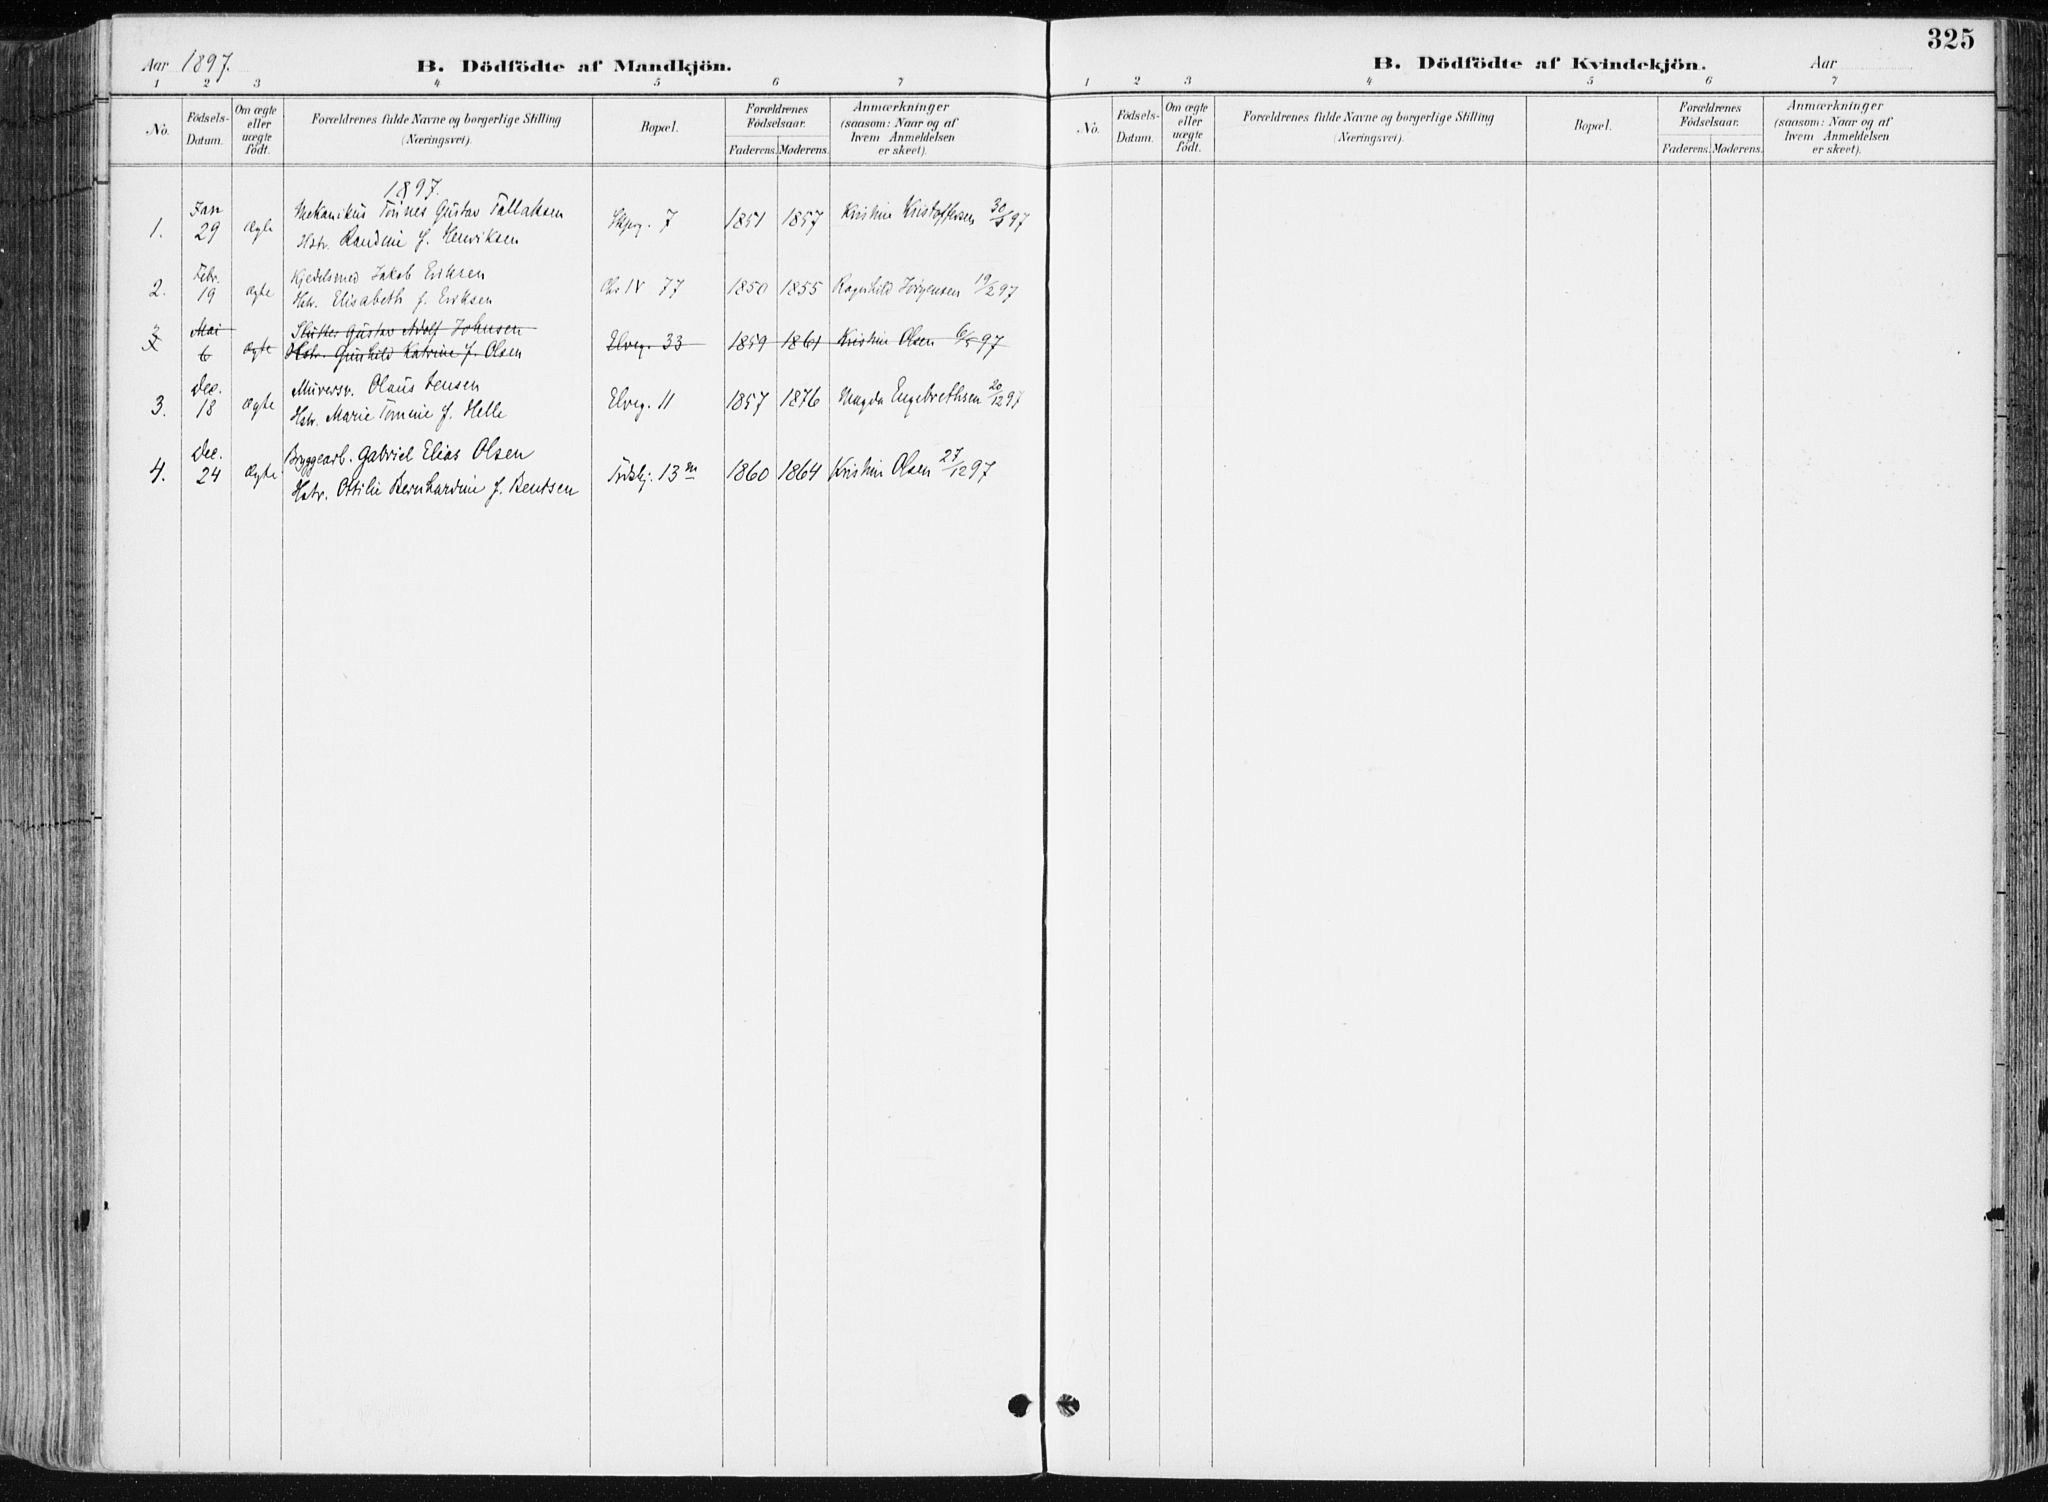 325
Aar 1897. B. Dödfödte af Mandkjön.
1 2 3 4 5 6 7
No. Födsels-Datum. Om ægte eller uægte födt. Forældrenes fulde Navne og borgerlige Stilling (Næringsvei). Bopæl. Forældrenes Födselsaar. Faderens. Moderens. Anmærkninger (saasom: Naar og af hvem Anmeldelsen er skeet).
1897.
1. Jan 29 Ægte Mekanikus Tönnes Gustav Tallaksen
Hstr. Randine f. Henriksen 7 1851 1857 Kristine Kristoffersen 30/1 97
2. Febr. 19 ægte Kjedelsmed Jakob Eriksen
Hstr. Elisabeth f. Eriksen Chr IV 77 1850 1855 Ragnhild Jörgensen 19/2 97
3 Mai 6 ægte Slutter Gustav Adolf Johnsen
Hstr. Gunhild Katrine f. Olsen Elveg. 33 1859 1861 Kristine Olsen 6/5 97
3. Dec. 18 Ægte Murersv. Olaus Jensen
Hstr. Marie Tomine f. Helle Elveg. 11 1857 1876 Magda Engebrethsen 20/12 97
4. Dec. 24 Ægte Bryggearb. Gabriel Elias Olsen
Hstr. Ottilie Bernhardine f. Bentsen 13 1860 1864 Kristine Olsen 27/12 97
B. Dödfödte af Kvindekjön. Aar
1 2 3 4 5 6 7
No. Födsels-Datum. Om ægte eller uægte födt. Forældrenes fulde Navne og borgerlige Stilling (Næringsvei). Bopæl. Forældrenes Födselsaar. Faderens. Moderens. Anmærkninger (saasom: Naar og af hvem Anmeldelsen er skeet).